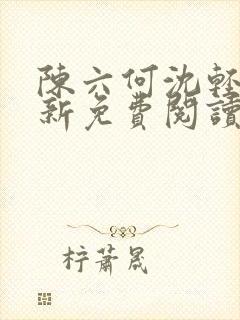 陳六何沈輕
新免費閱讀
柠蕭晟